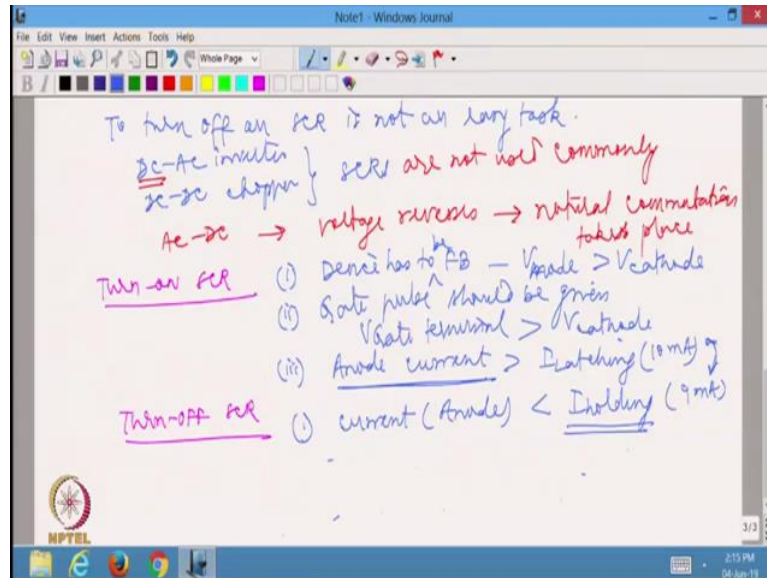 Note1 - Windows Journal
File Edit View Insert Actions Tools Help
Whole Page
B I
To turn off an SCR is not an easy task.
DC-AC inverter
DC-DC chopper } SCRs are not used commonly
AC-DC → voltage reverses → natural commutation
takes place
Turn-on SCR (i) Device has to be FB - Vanode > Vcathode
(ii) Gate pulse should be given
VGate terminal > Vcathode
(iii) Anode current > Ilatching (10 mA)
Turn-off SCR (i) current (Anode) < Iholding (9 mA)
NPTEL
3/3
2:15 PM
04-Jun-19